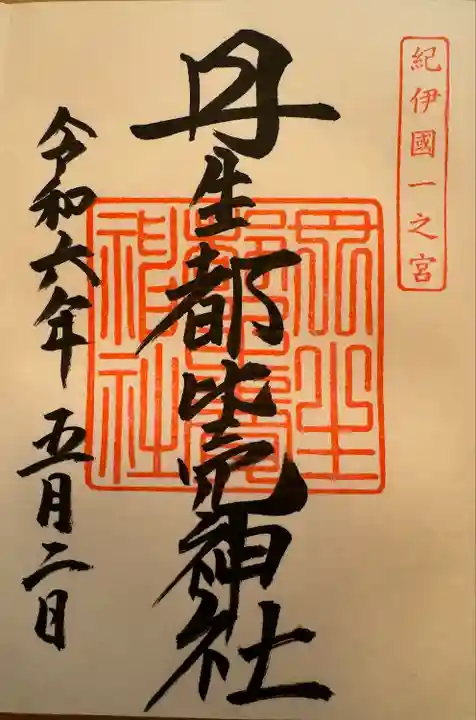 紀伊國一之宮
丹生都比売神社
令和六年五月二日
丹生都比賣神社